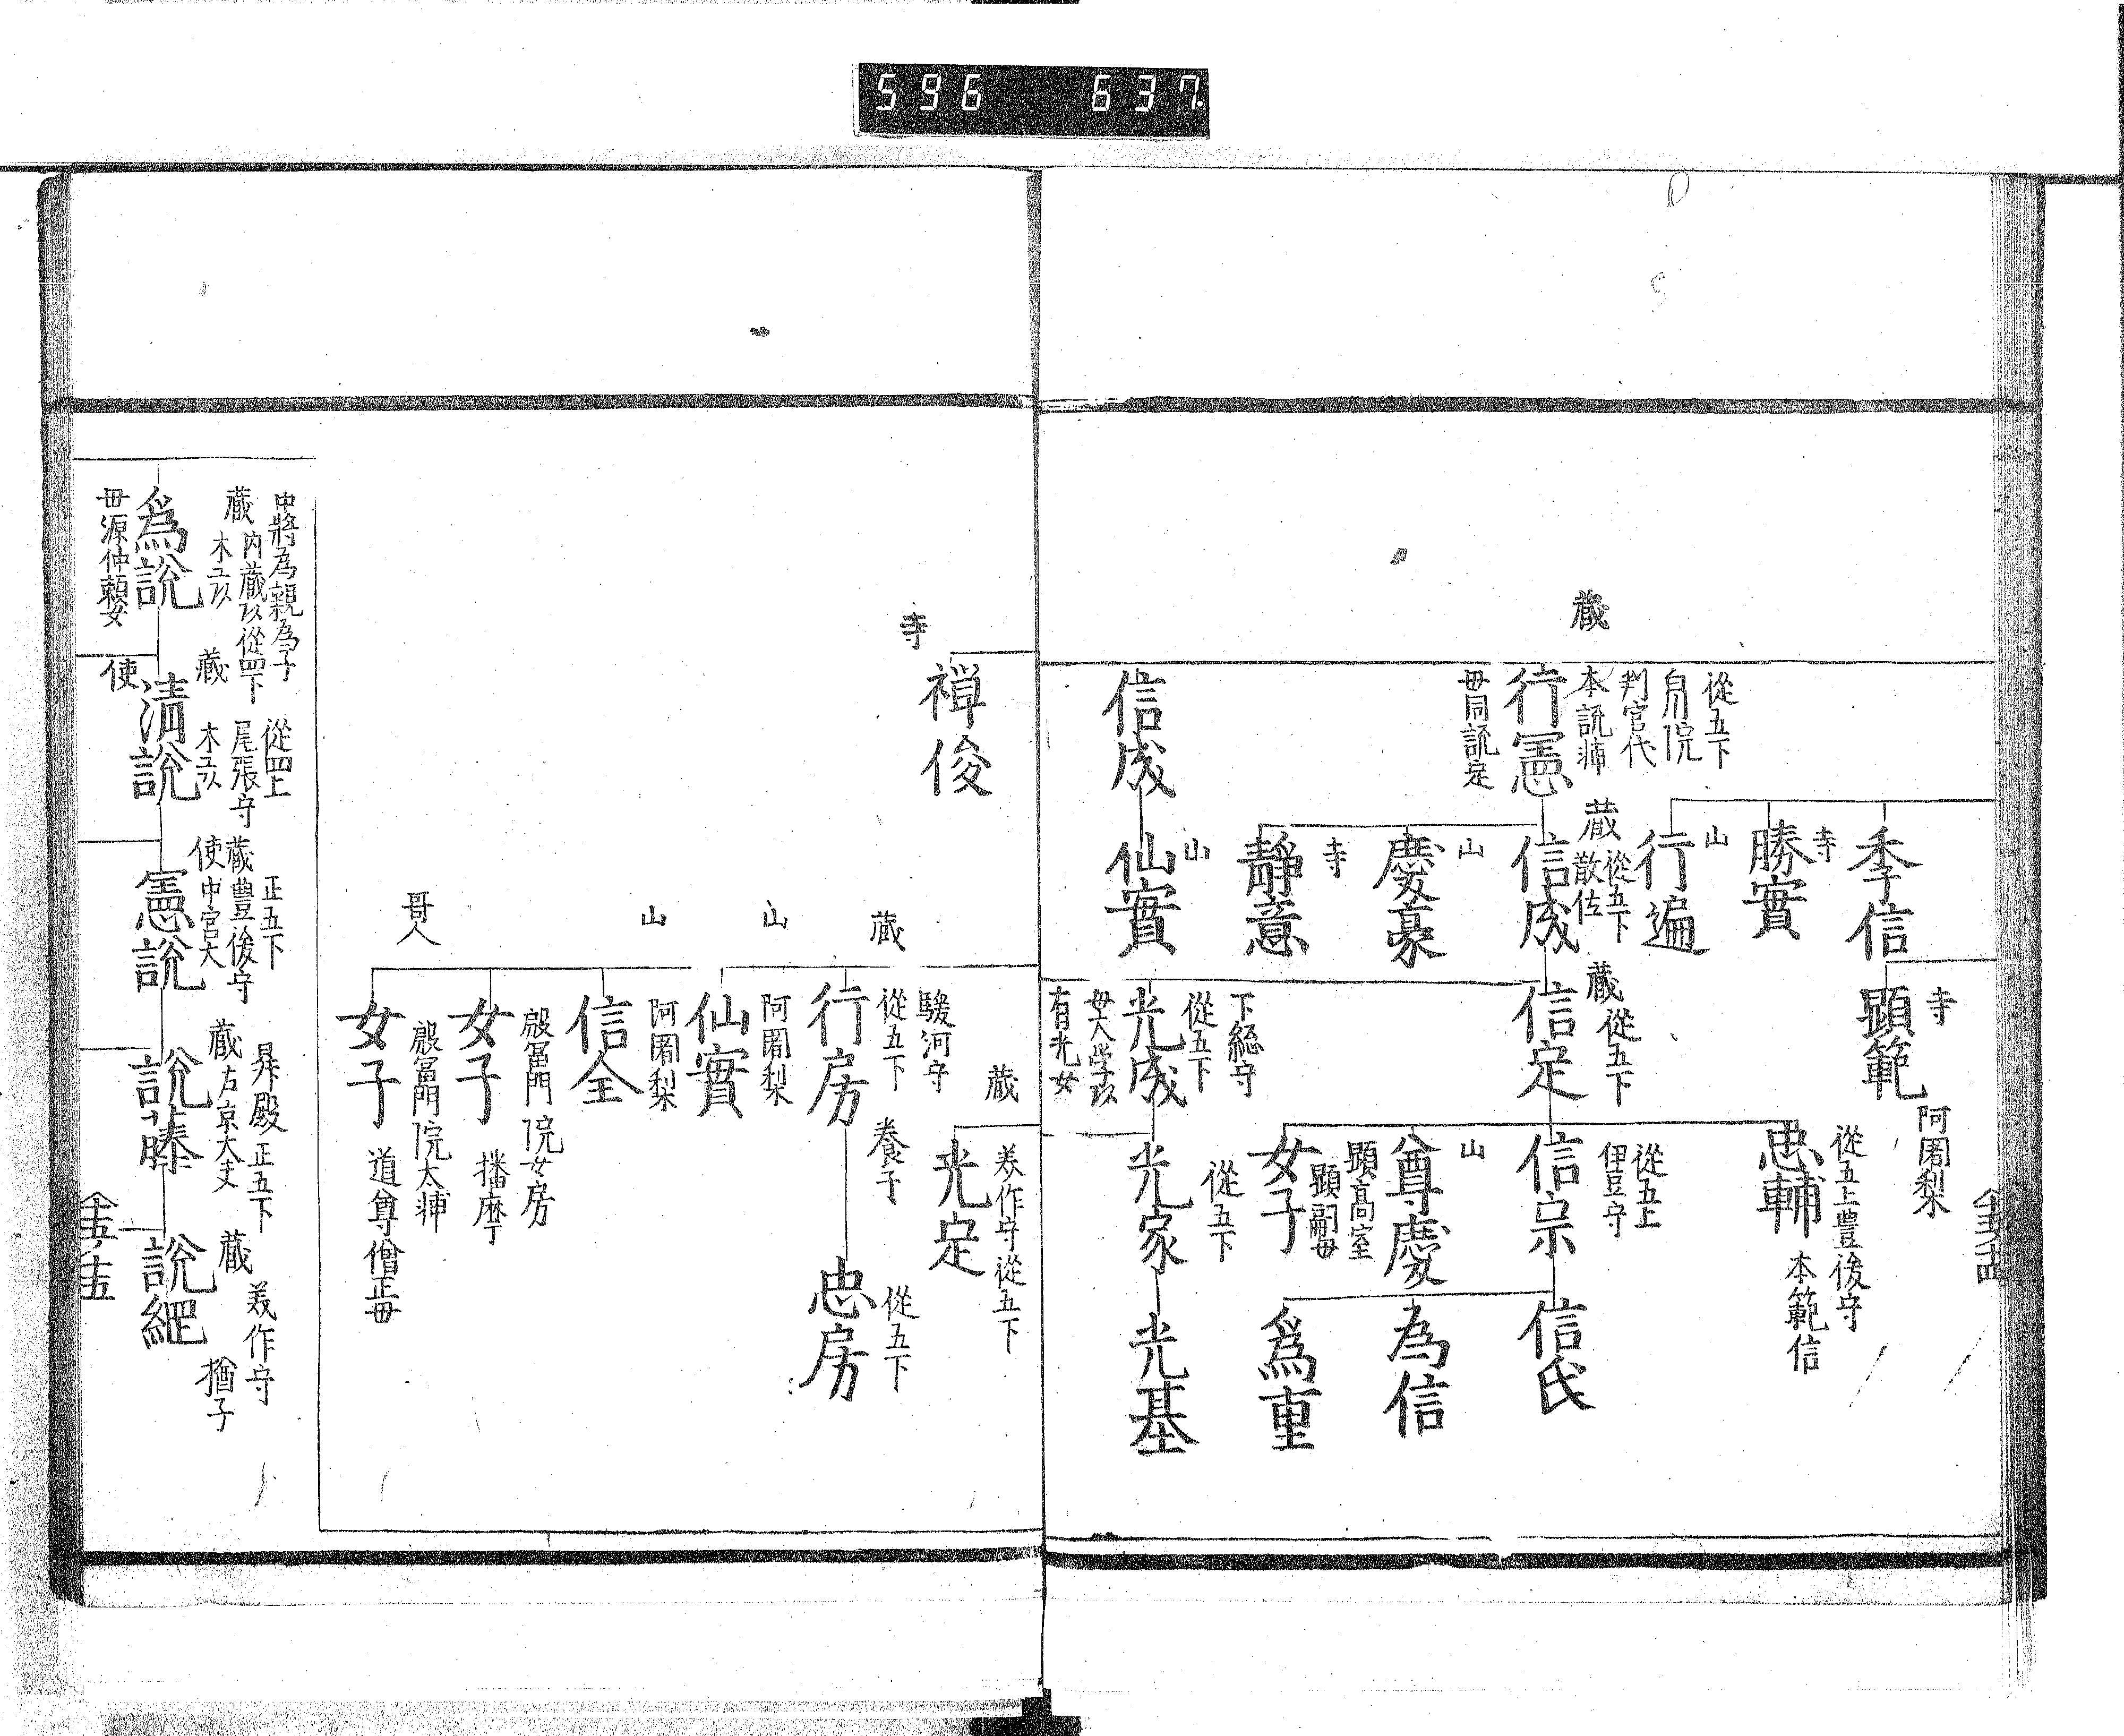 596 637
季信
寺
顕範
阿闍梨
寺
勝實
山
行遍
從五上豊後守
忠輔
本範信
從五下
白川院
判官代
藏
行憲
母同説定
藏
從五下
散位
信成
藏
從五下
信定
從五上
伊豆守
信宗
信氏
山
慶豪
山
尊慶
為信
寺
靜意
顕高室
顕嗣母
女子
爲重
信成
山
仙實
下総守
從五下
光成
有光女
從五下
光家
光基
寺
禅俊
藏
美作守從五下
光定
藏
駿河守
從五下
行房
養子
從五下
忠房
山
阿闍梨
仙實
山
阿闍梨
信全
殷冨門院女房
女子
播磨
哥人
殷冨門院太輔
女子
道尊僧正母
中將為親為子
藏
内藏以從四下
木工以
爲説
母源仲頼女
從四上
藏
尾張守
木工以
清説
使
正五下
藏豊後守
使中宮大
憲説
昇殿正五下
藏右京大夫
説藤
藏
美作守
猶子
説繩